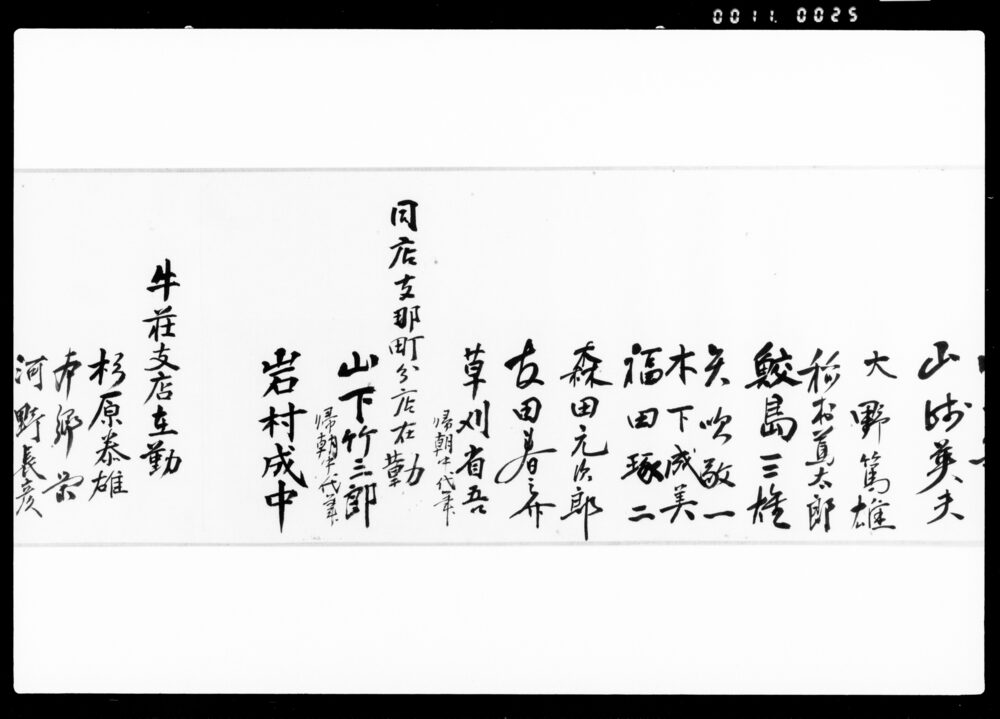 0011 0025
山崎英夫
大野篤雄
稲村真太郎
鮫島三雄
矢吹敬一
木下成美
福田琢二
森田元次郎
友田春之介
草刈省吾
帰朝中代筆
同店支那町分店在勤
山下竹三郎
帰朝中代筆
岩村成中
牛荘支店在勤
杉原泰雄
本郷栄
河野長彦